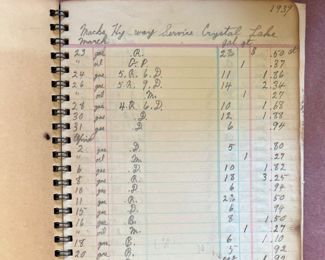 1937
Macks Hy way Service Crystal Lake
march gal qt
23 gas R. 2½ $ .50
" oil O.P. 1 .37
24 gas 5.R. 6.D. 11 1.86
26 gas 5.R. 9.D. 14 2.34
" " M. 1 .27
28 gas 4.R. 6.D. 10 1.68
30 gas D. 12 1.88
31 " D. 6 .94
April
2 gas D. 5 .80
" oil M. 1 .27
6 gas D. 10 1.82
8 gas R. 18 3.25
10 gas D. 6 .94
11 gas R. 2½ .50
15 gas D. 6 .94
16 gas 8 1.50
" " M. 1 .27
18 gas 6 1.10
20 gas 5 .92